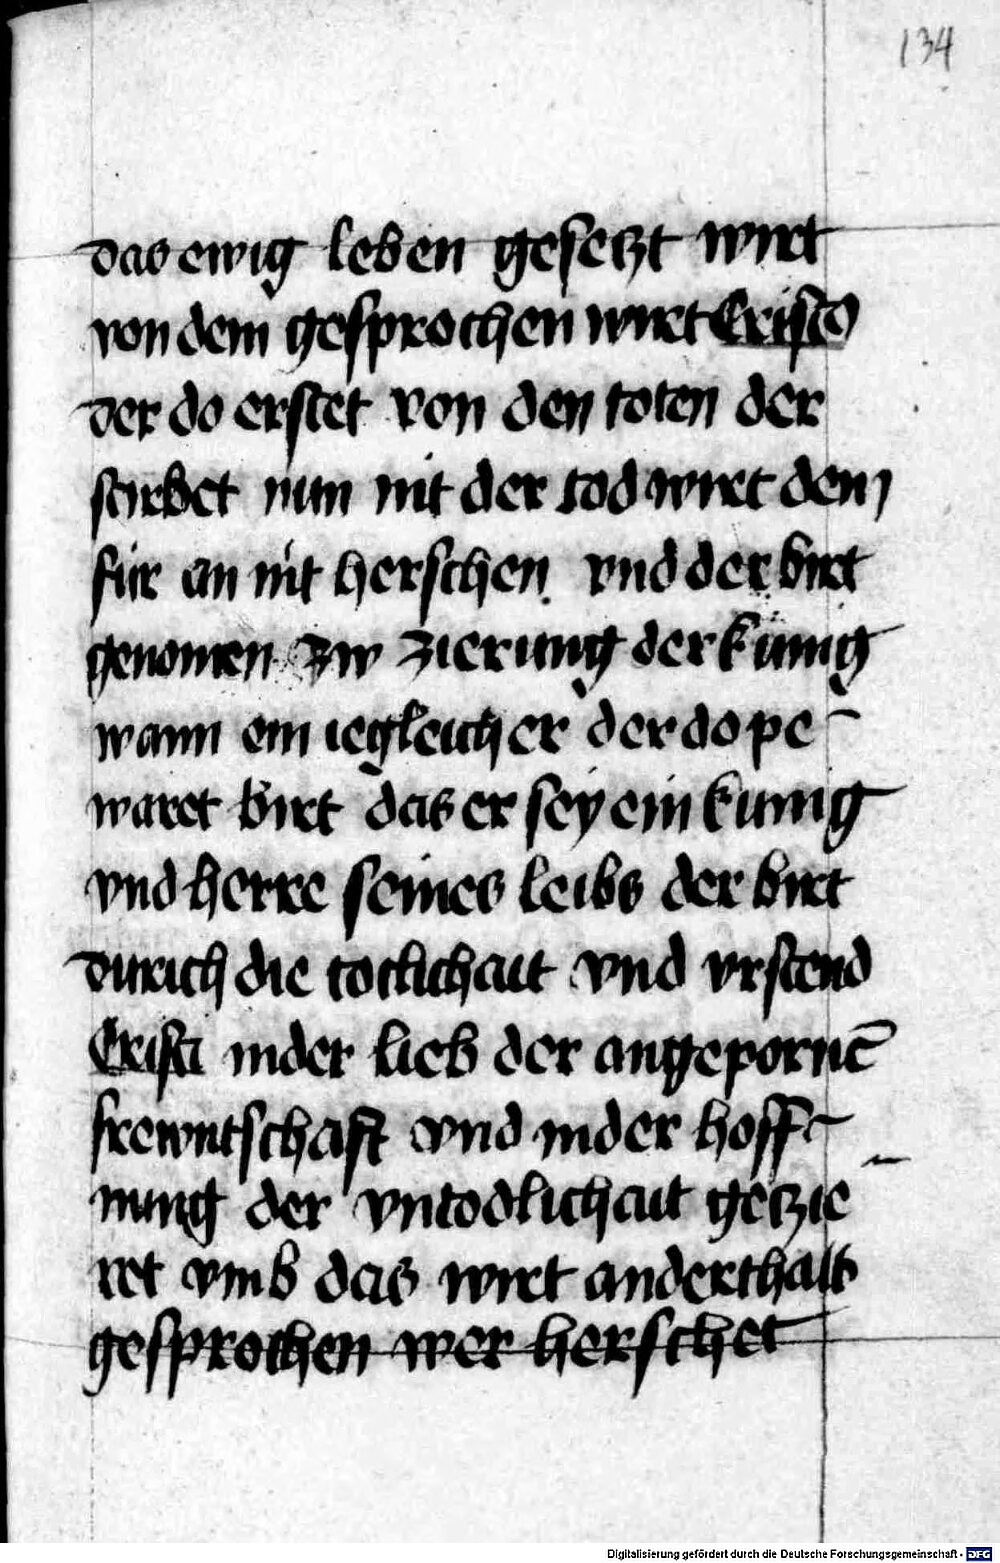 134
das ewig leben gesetzt wirt
von dem gesprochen wirt Cristo
der do erstet von den toten der
stirbet nun nit der tod wirt dem
für an nit herschen vnd der birt
genomen zw zierung der künig
wann ein iegleicher der do pe¬
waret birt das er sey ein kunig
vnd herre seines leibs der birt
durich die totlichait vnd vrstend
Cristi in der lieb der angepornē
frewntschaft vnd in der hoff¬
nung der vntodlichait getzie
ret vmb das wirt anderthalb
gesprochen wer herschet
Digitalisierung gefördert durch die Deutsche Forschungsgemeinschaft - DFG